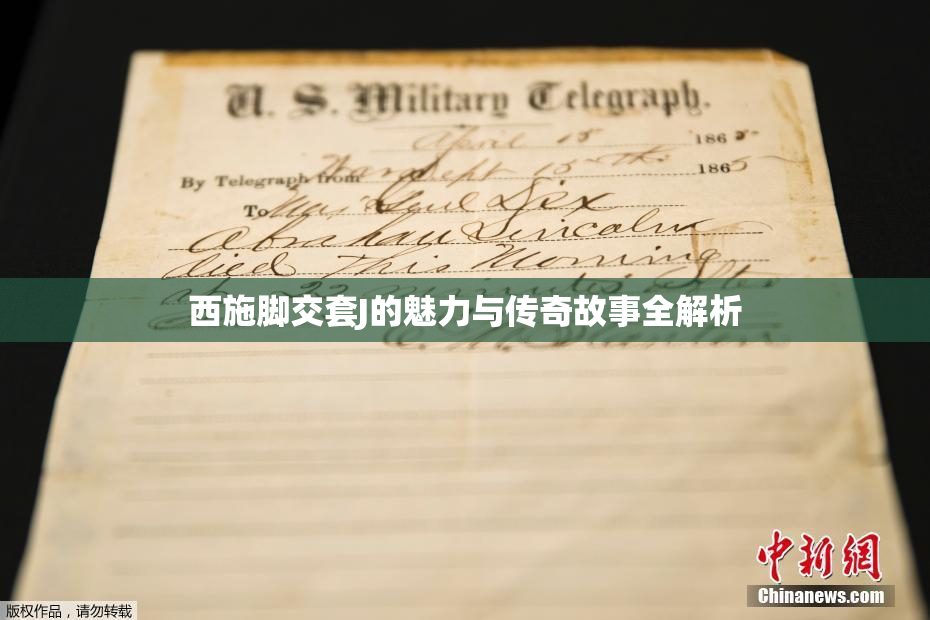 U. S. Military Telegraph.
April 15 1865
By Telegraph from War Dept 15th 1865
To Maj Genl Dix
Abraham Lincoln
died This Morning
at 22 minutes after
西施脚交套J的魅力与传奇故事全解析
中新网
Chinanews.com
版权作品，请勿转载